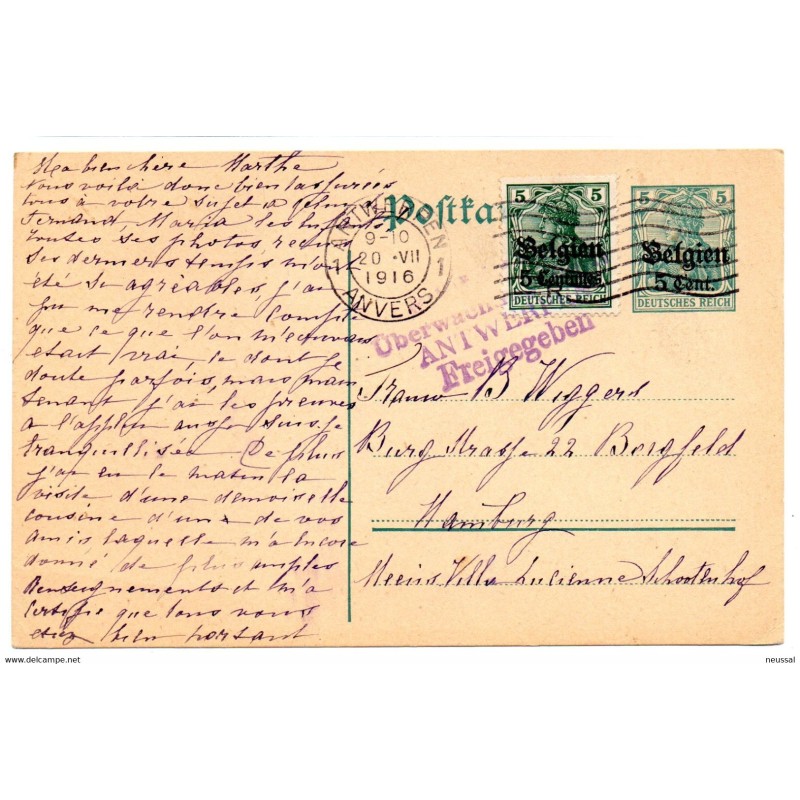 Ma bien chère Marthe
Nous voilà donc bien rassurées
tous à votre sujet
Fernand, Maria les enfants
toutes ses photos
ces derniers temps m'ont
été si agréables, j'ai
pu me rendre compte
que ce que l'on m'écrivais
etait vrai, je dont je
doute parfois, mais main
tenant j'ai les preuves
a l'appui aussi suis je
tranquillisée De plus
j'ai eu le matin la
visite d'une demoiselle
cousine d'un de vos
amis laquelle m'a encore
donné de plus amples
Renseignements et m'a
certifié que tous vous
etiez bien portant
Postka
ANTWERPEN
1 1
9-10
20 -VII
1916
ANVERS
5 5
Belgien
5 Centimes
DEUTSCHES REICH
5 5
Belgien
5 Cent.
DEUTSCHES REICH
Überwach
ANTWERP
Freigegeben
Frauw B Wiggers
Burg Strasse 22 Borgfeld
Hamburg
Villa Lucienne Schootenhof
www.delcampe.net
neussal